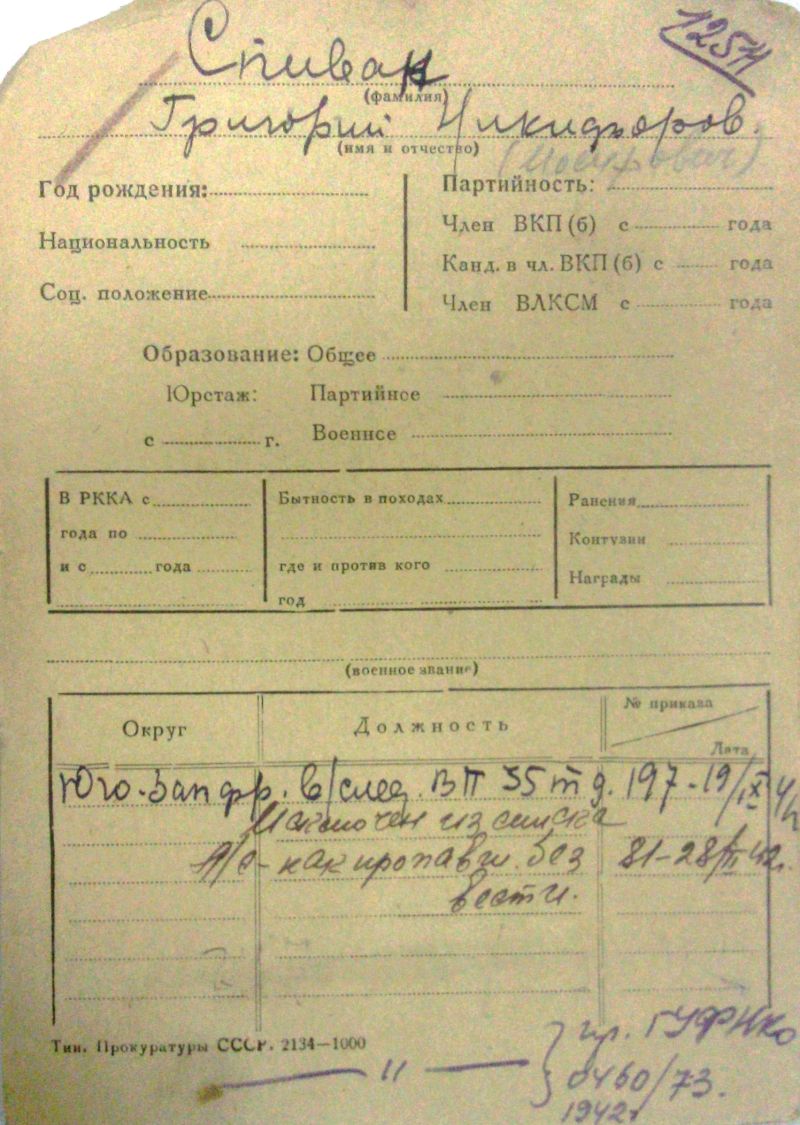 1251
Спивак
(фамилия)
Григорий Никифоров.
(имя и отчество)
Год рождения:
Национальность
Соц. положение
Партийность:
Член ВКП(б) с года
Канд. в чл. ВКП(б) с года
Член ВЛКСМ с года
Образование: Общее
Юрстаж: Партийное
с г. Военнсе
В РККА с
года по
и с года
Бытность в походах
где и против кого
год
Ранения
Контузии
Награды
(военное звание)
Округ Должность № приказа
Дата
Юго-Зап фр. в/след. ВП 35 т д. 197-19/IX 41
Исключен из списка
как пропавш. без 81-28/III 42г.
вести.
Тип. Прокуратуры СССР. 2134—1000
— " — } пр. ГУФНКО
0460/73.
1942г